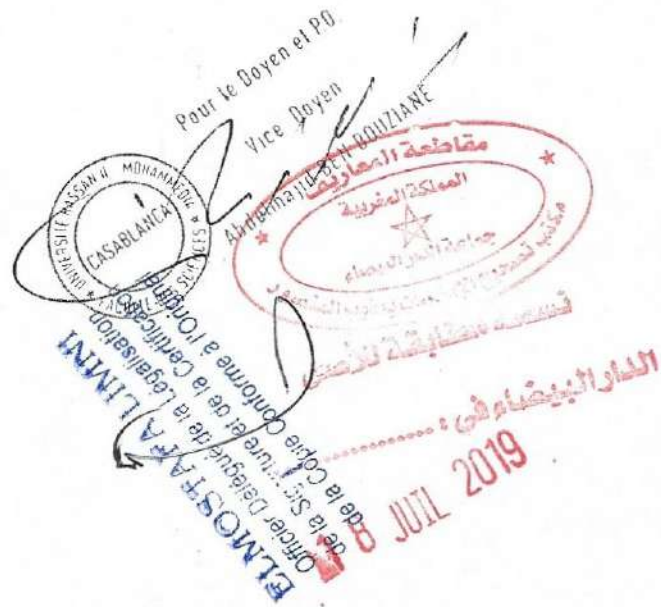 Pour le Doyen et P.O.
Vice Doyen
Abdelmajid BEN BOUZIANE
UNIVERSITE HASSAN II MOHAMMEDIA
FACULTE SCIENCES
CASABLANCA
مقاطعة المعاريف
المملكة المغربية
جماعة الدار البيضاء
مكتب تصحيح
نسخة مطابقة للأصل
الدار البيضاء في :
8 JUIL 2019
ELMOSTAFA LIMNI
Officier Délégué de la Légalisation
de la Signature et de la Certification
de la Copie Conforme à l'Original